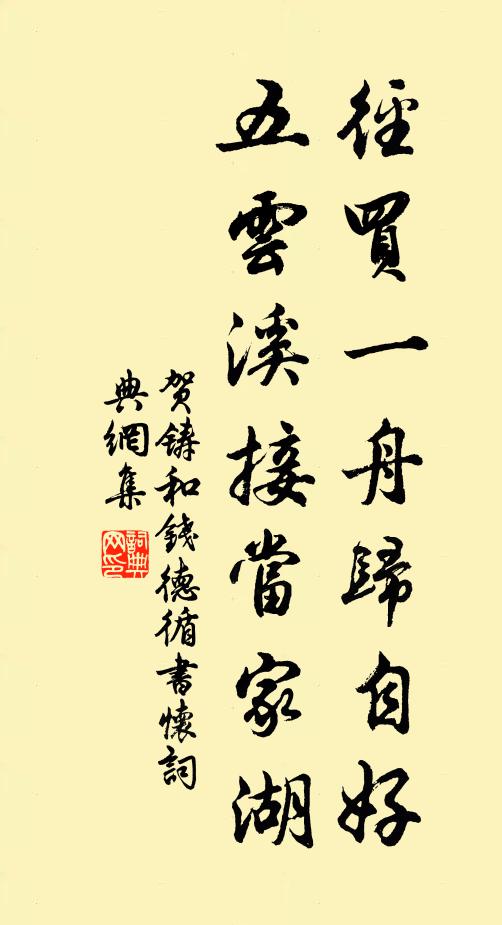 徑買一舟歸自好
五雲溪接當家湖
賀鑄和錢德循書懷詞
典網集
詞典網印